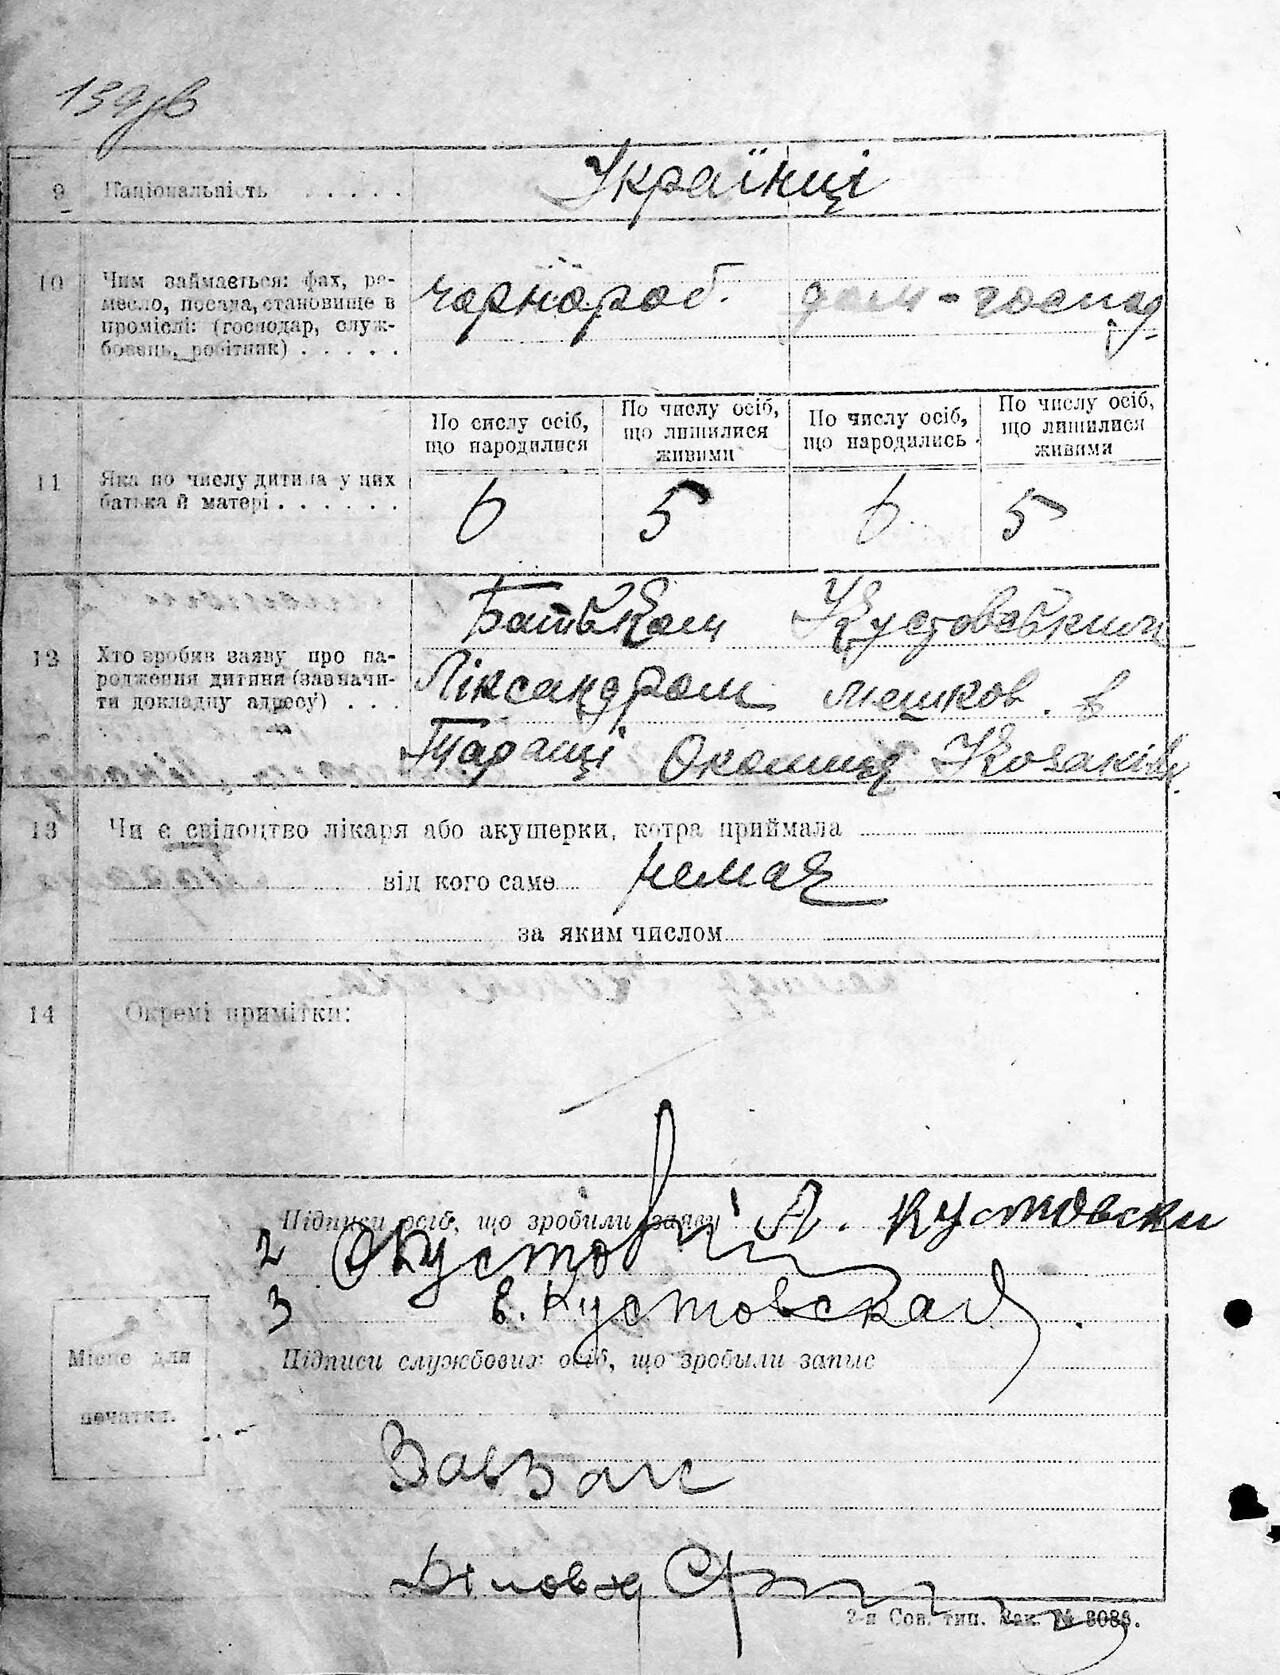 139зв
Українці
9 Національність . . . . .
10 Чим займається: фах, ре-
месло, посада, становище в
проміслі: (господар, служ-
бовець, робітник) . . . . .
чорнороб. дом-господ.
По числу осіб, що народилися
По числу осіб, що лишилися живими
По числу осіб, що народились
По числу осіб, що лишилися живими
11 Яка по числу дитина у цих
батька й матері . . . . . .
6 5 6 5
Батьком Кустовським
12 Хто зробив заяву про на-
родження дитини (зазначи-
ти докладну адресу) . . .
Ліксандром мешков. в
Таращі Околиця Козаків
13 Чи є свідоцтво лікаря або акушерки, котра приймала
від кого саме немає
за яким числом
14 Окремі примітки:
Підписи осіб, що зробили заяву 1 А. Кустовски
2 Кустовс
3 в. Кустовская.
Підписи службових осіб, що зробыли запис
Місце для
печатки.
ЗавЗагс
Діловод
2-я Сов. тип. Зак. № 3086.